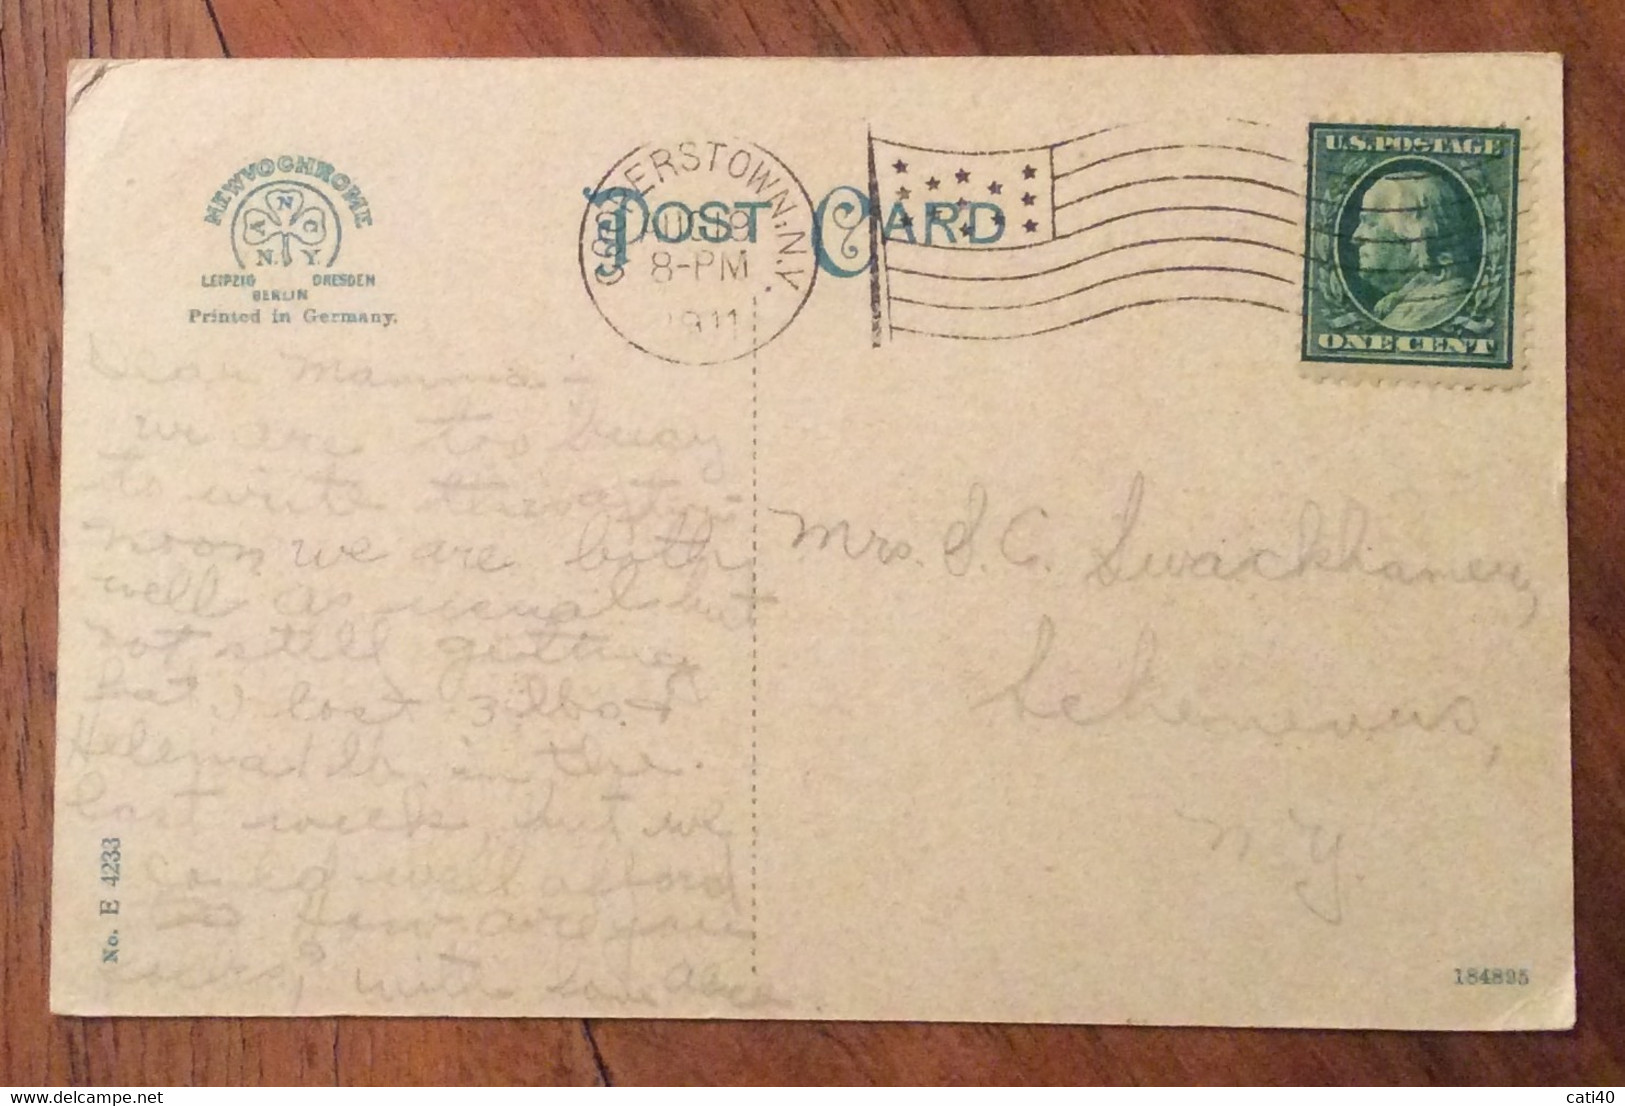 NEWVOCHROME
A N C
N. Y.
LEIPZIG DRESDEN
BERLIN
Printed in Germany.
POST CARD
COOPERSTOWN. N.Y.
AUG 19
8-PM
1911
U.S. POSTAGE
ONE CENT
Dear Mamma -
We are too busy
to write this after-
noon we are both
well as usual but
not still getting
fat, I lost 3 lbs. +
Helena 1 lb. in the
last week, but we
could well afford
How are you
with love Alice.
Mrs. S. C. Swackhamer,
Schenevus,
N. Y.
No. E 4233
184895
cati40